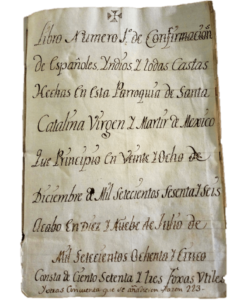 Libro Numero 1º de Confirmacion
de Españoles, Yndios Y Todas Castas
Hechas En Esta Parroquia de Santa
Catalina Virgen Y Martir de Mexico
Que Principio En Veinte Y Ocho de
Diciembre d Mil Setecientos Sesenta Y Seis
Acabo En diez Y Nuebe de Julio de
Mil Setecientos Ochenta Y Cinco
Consta de Ciento Setenta Y tres foxas Utiles